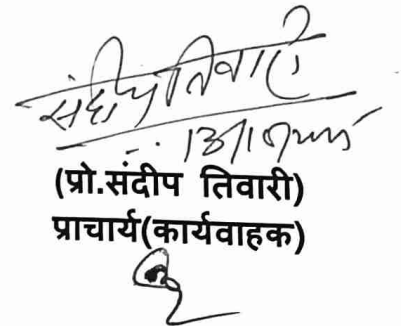 संदीप तिवारी
(प्रो.संदीप तिवारी)
प्राचार्य(कार्यवाहक)